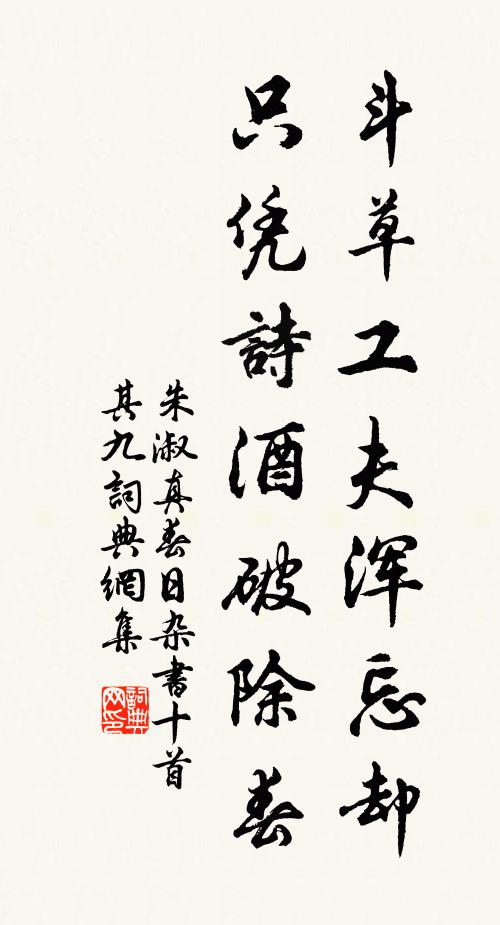 斗草工夫浑忘却
只凭詩酒破除春
朱淑真春日杂書十首
其九詞典網集
詞典网印